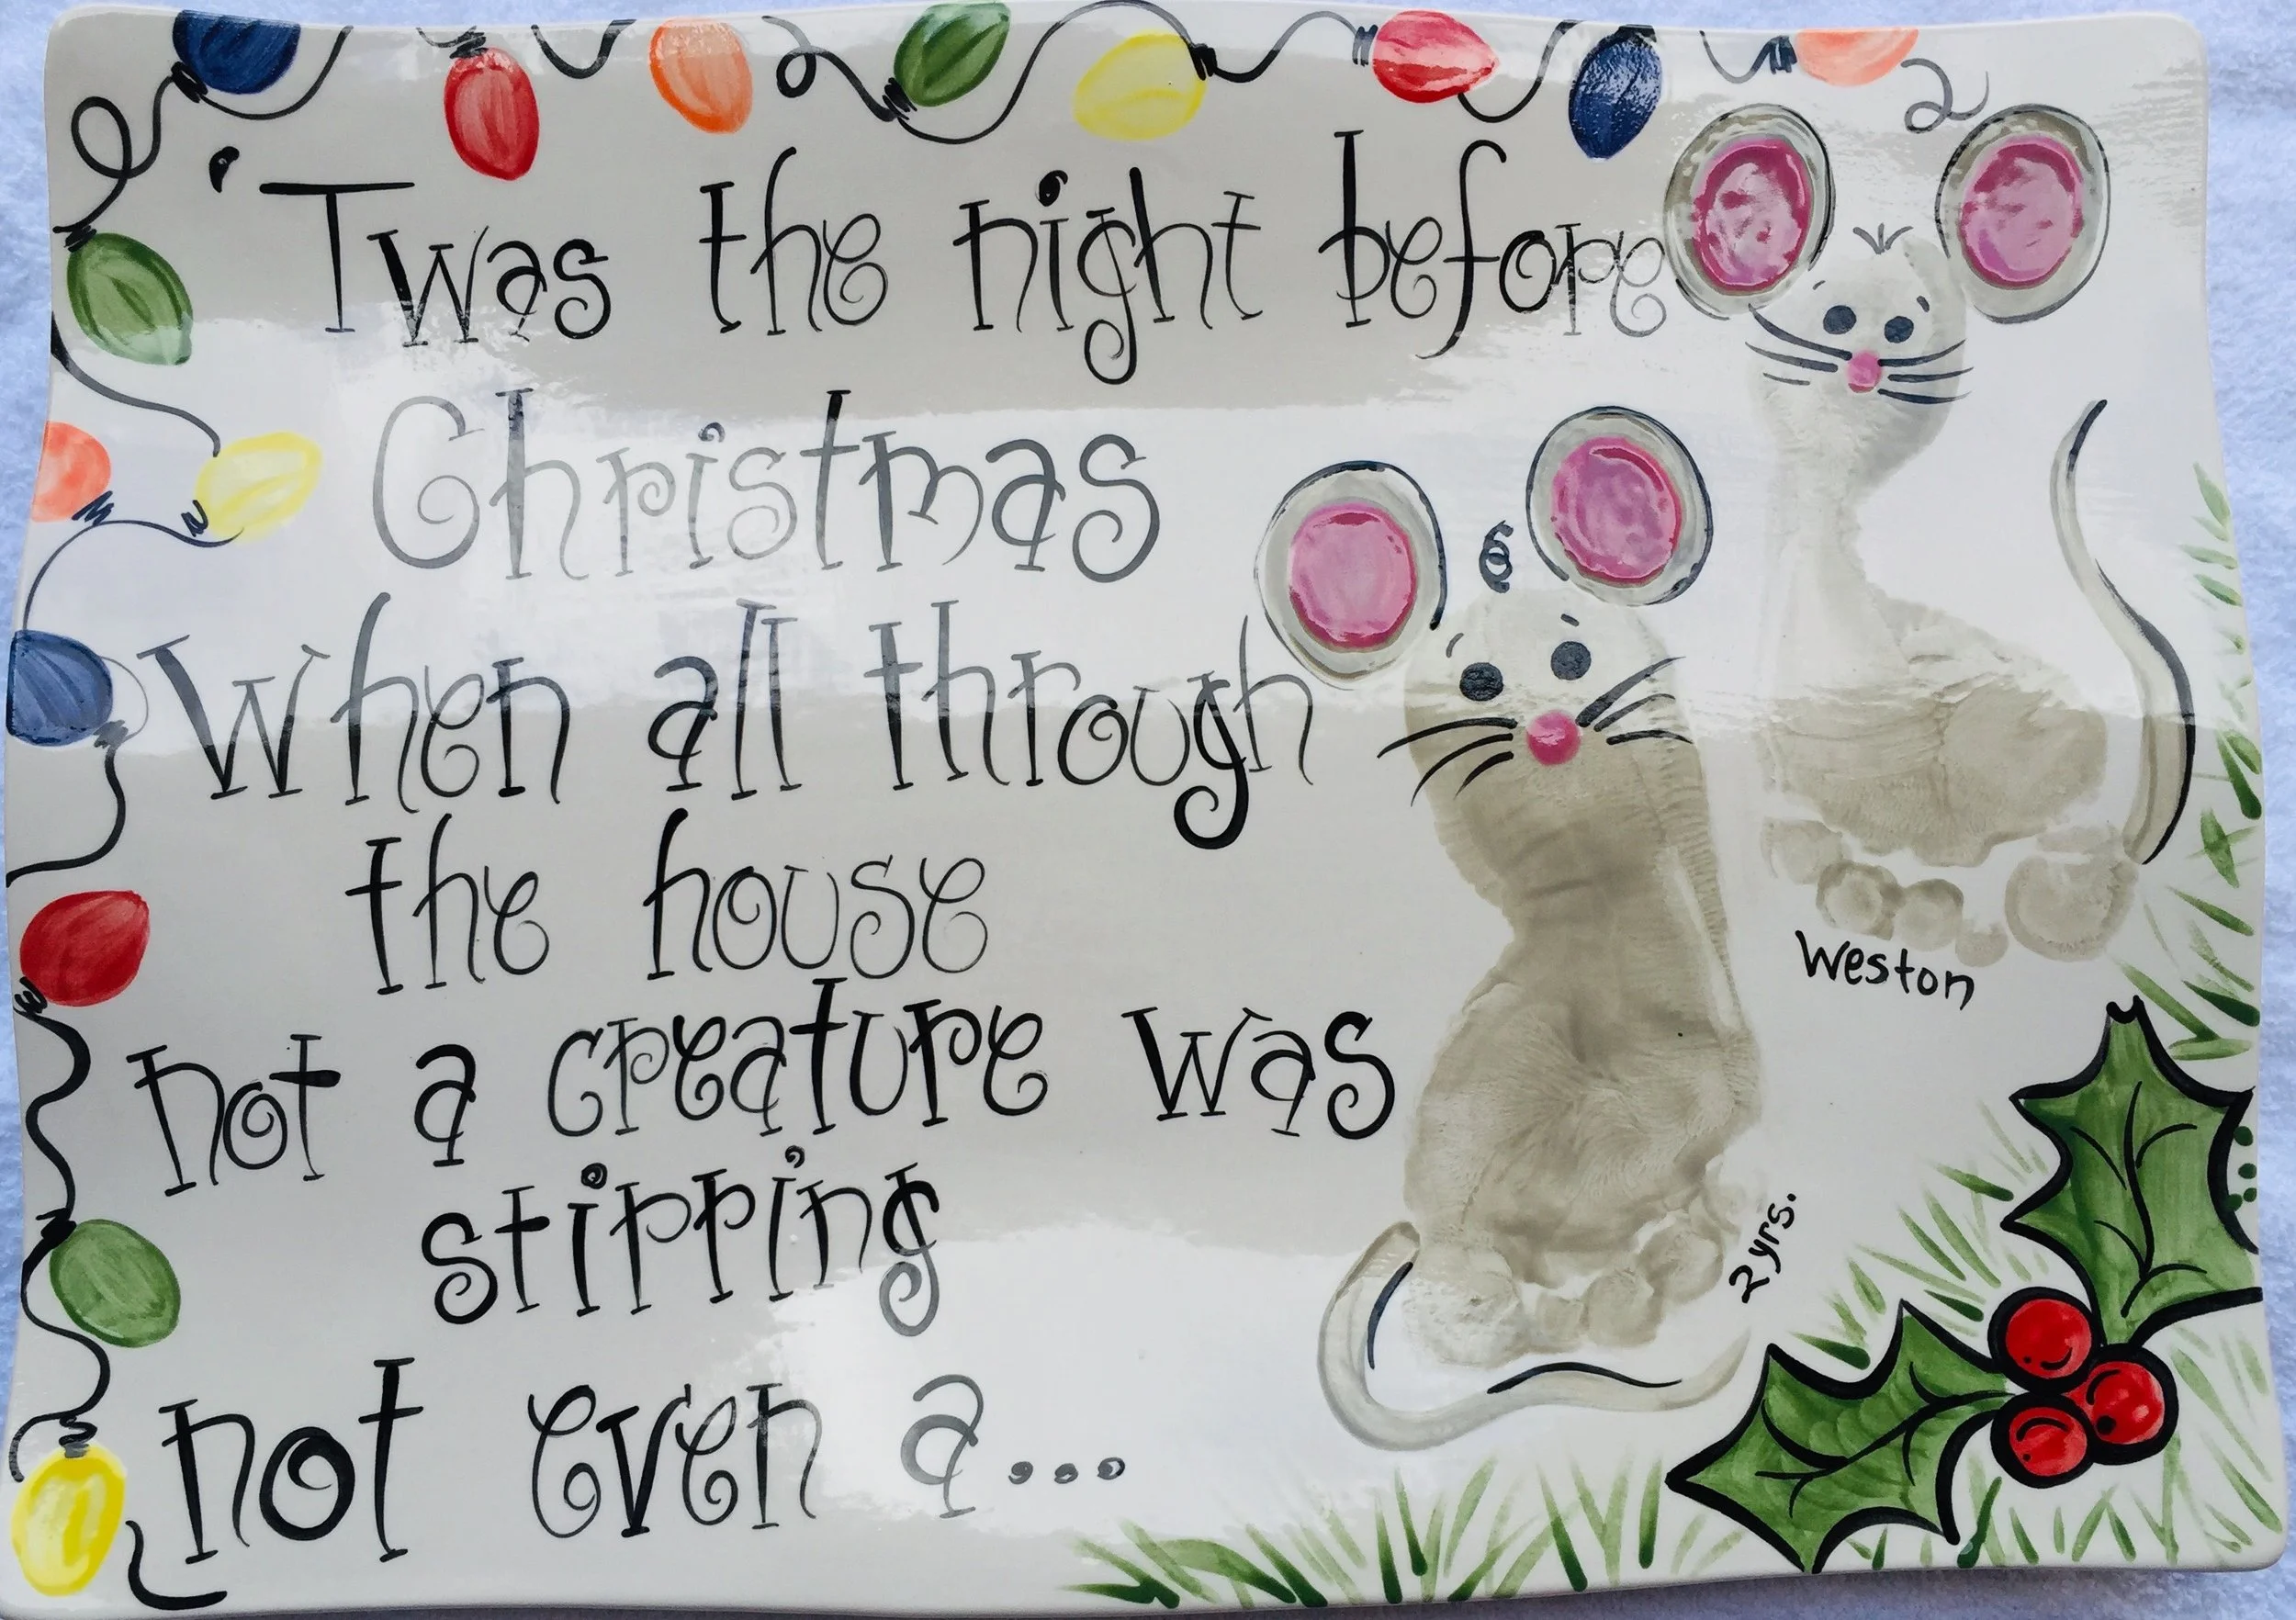 'Twas the night before
Christmas
When all through
the house
not a creature was
stirring
not even a...
Weston
2yrs.